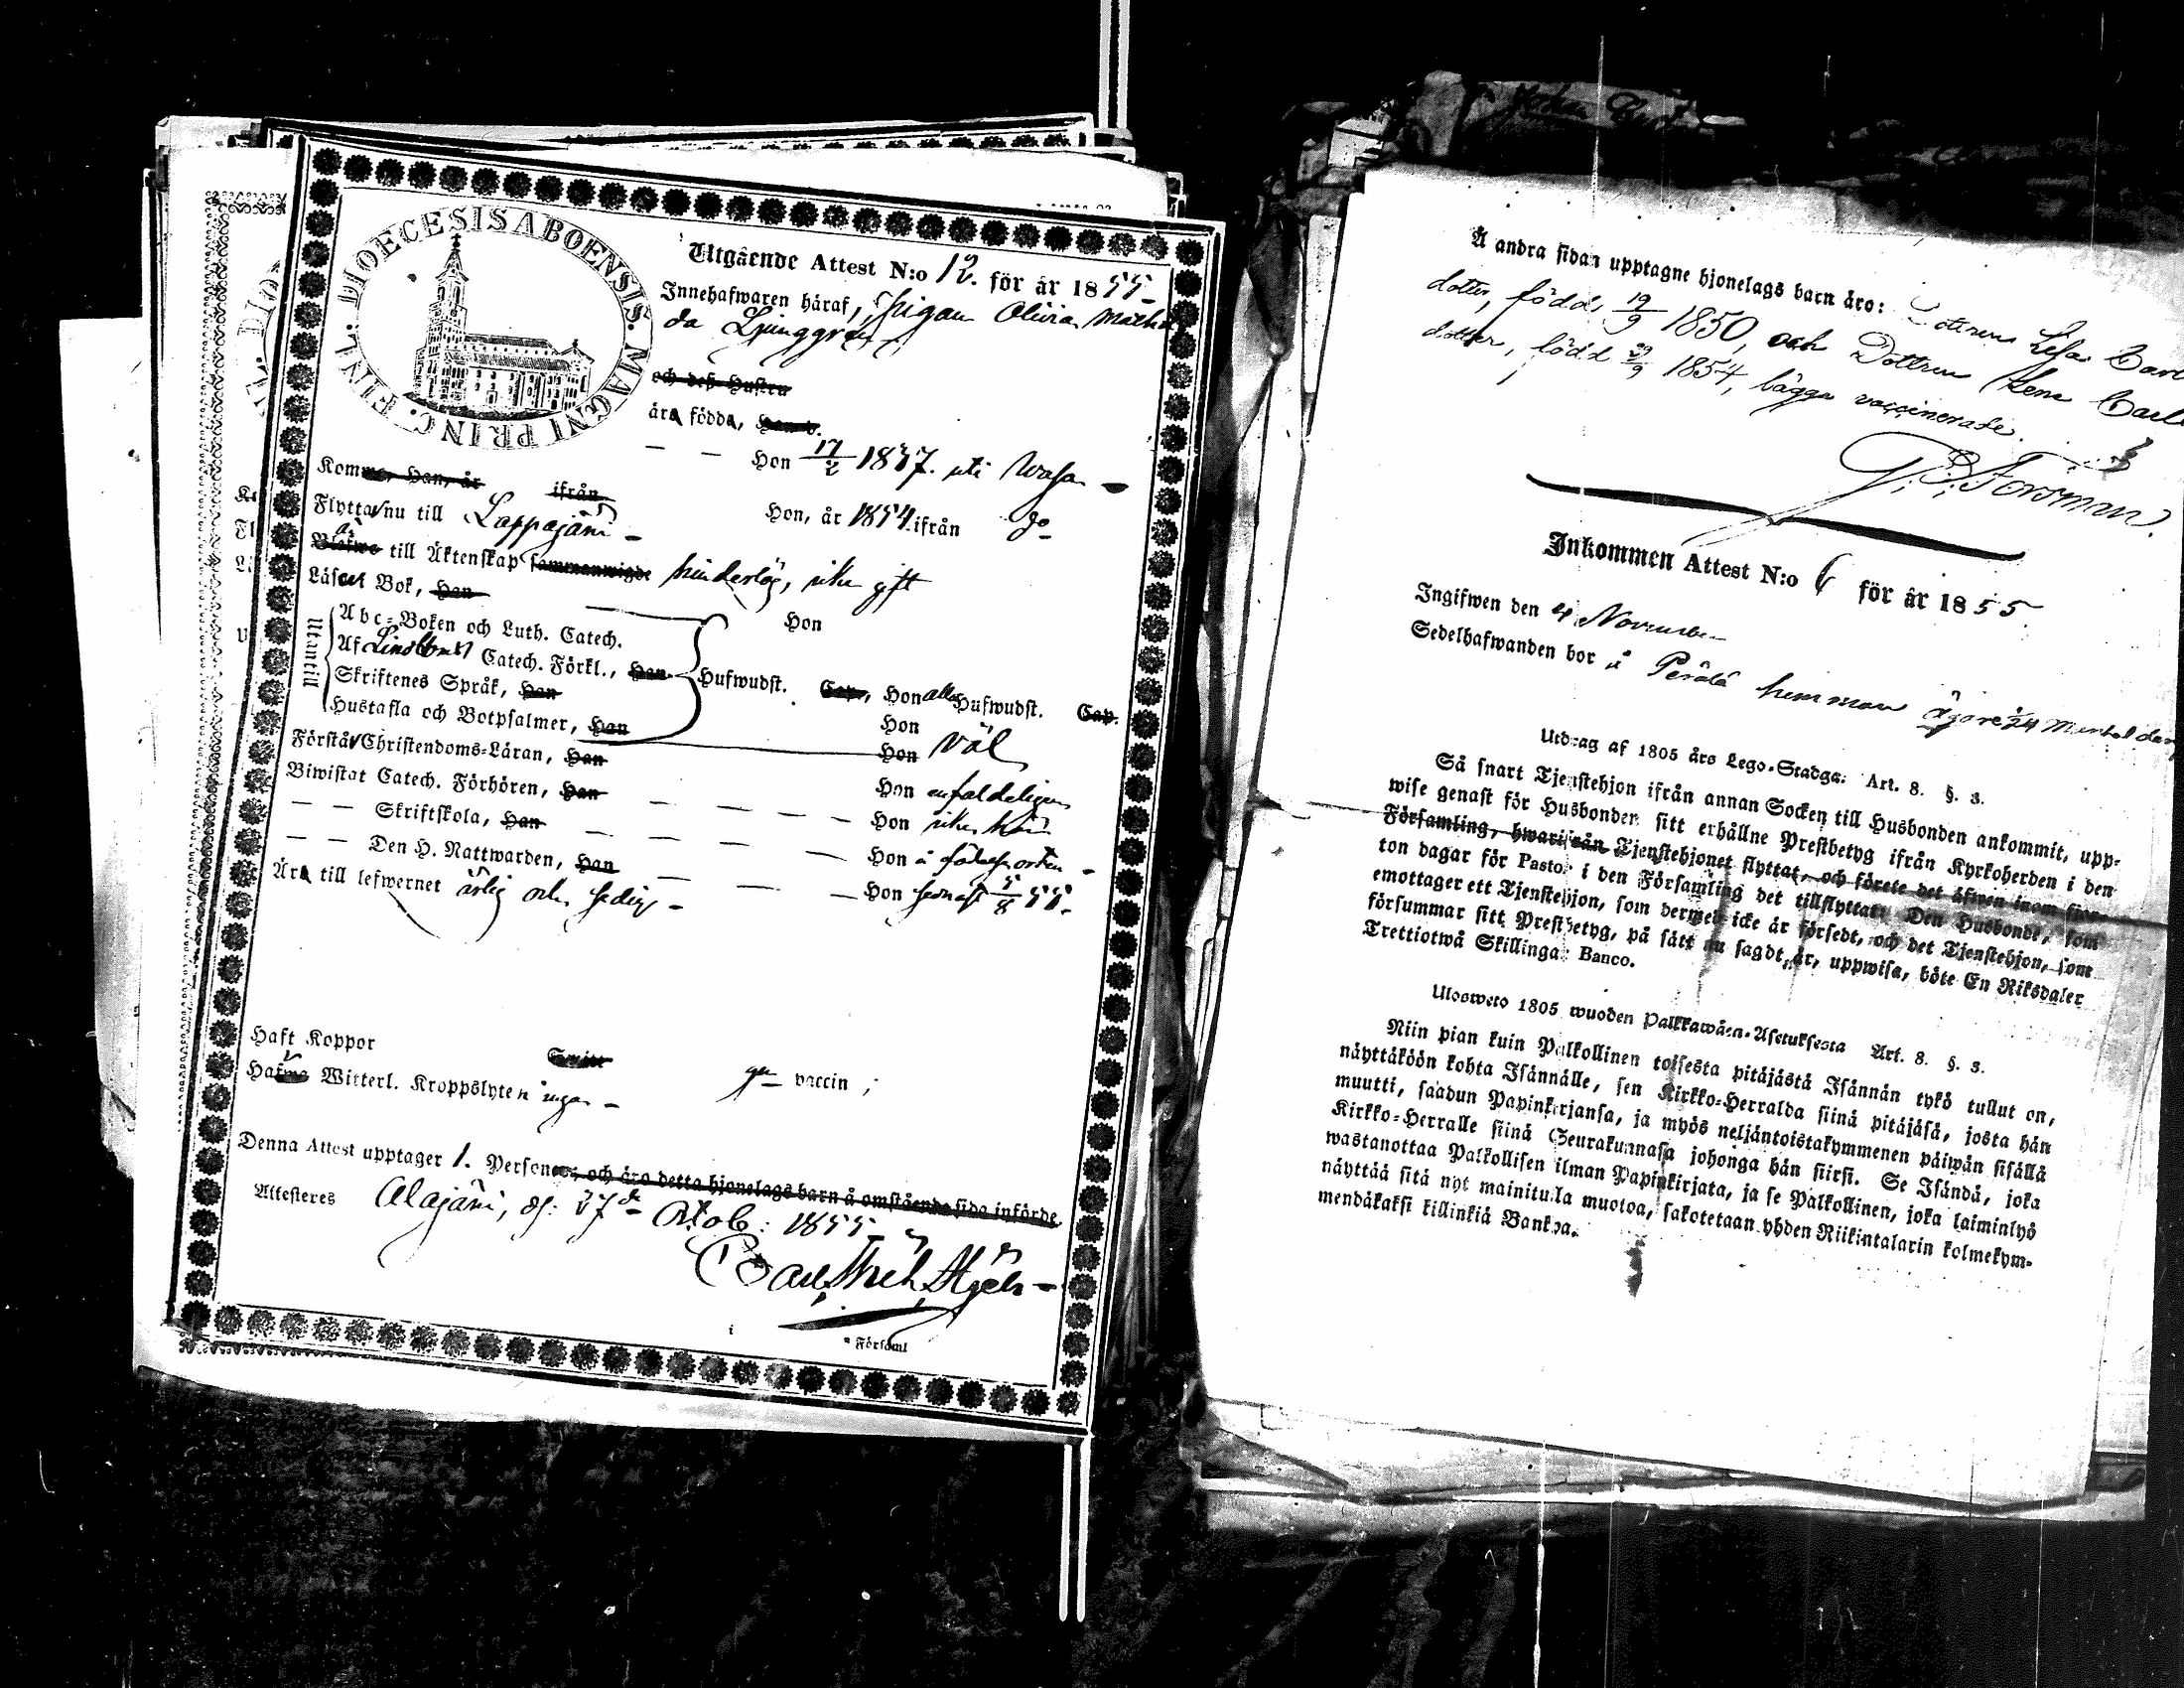 DIOECESIS ABOENSIS. MAGNI PRINC. FINL.
Utgående Attest N:o 12. för år 1855
Innehafwaren häraf, Pigan Olivia Mathil
da Ljunggren
och dess Hustru
äro födda, Han d.
— — Hon 17/2 1837. uti Wasa —
Kommo, Han, år ifrån Hon, år 1854 ifrån do
Flytta nu till Lappajärvi —
är till Äktenskap sammanwigde hinderlös, icke gift
Läser Bok, Han Hon
Utantill
Abc-Boken och Luth. Catech.
Af Lindbms Catech. Förkl., Han Hufwudst. Cap., Hon alla Hufwudst. Cap.
Skriftenes Språk, Han Hon
Hustafla och Botpsalmer, Han Hon väl
Förstår Christendoms-Läran, Han Hon enfaldeligen
Biwistat Catech. Förhören, Han — — — Hon icke här
— — Skriftskola, Han — — — Hon å födelseorten —
— — Den H. Nattwarden, Han — — — Hon senast 5/8 55.
Äro till lefwernet ärlig och sedig —
Haft Koppor Smitt gn vaccin;
Hafwa Witterl. Kroppslyten inga —
Denna Attest upptager 1. Personer, och äro detta hjonelags barn å omstående sida införde.
Attesteres Alajärvi, d. 27de Octob: 1855
Carl Fredr
i Församl
Å andra sidan upptagne hjonelags barn äro: Dottren Lisa Carls
dotter, född 19/9 1850, och Dottren Lena Carls
dotter, född 29/9 1854, bägge vaccinerade.
G. Forsman.
Inkommen Attest N:o 6 för år 1855.
Ingifwen den 4 November
Sedelhafwanden bor å Perälä hemman ägare 5/24 Mantal
Utdrag af 1805 års Lego-Stadga: Art. 8. §. 3.
Så snart Tjenstehjon ifrån annan Socken till Husbonden ankommit, upp-
wise genast för Husbonden sitt erhållne Prestbetyg ifrån Kyrkoherden i den
Församling, hwarifrån Tjenstehjonet flyttat, och förete det äfwen inom fjor-
ton dagar för Pastor i den Församling det tillflyttat. Den Husbonde, som
emottager ett Tjenstehjon, som dermed icke är försedt, och det Tjenstehjon, som
försummar sitt Prestbetyg, på sätt nu sagdt är, uppwisa, böte En Riksdaler
Trettiotwå Skillingar Banco.
Ulosweto 1805 wuoden Palkkawäen-Asetuksesta Art. 8. §. 3.
Niin pian kuin Palkollinen toisesta pitäjästä Isännän tykö tullut on,
näyttäköön kohta Isännälle, sen Kirkko-Herralda siinä pitäjäsä, josta hän
muutti, saadun Papinkirjansa, ja myös neljäntoistakymmenen päiwän sisällä
Kirkko-Herralle siinä Seurakunnasa johonga hän siirsi. Se Isändä, joka
wastanottaa Palkollisen ilman Papinkirjata, ja se Palkollinen, joka laiminlyö
näyttää sitä nyt mainitulla muotoa, sakotetaan yhden Riikintalarin kolmekym-
mendäkaksi killinkiä Bankoa.